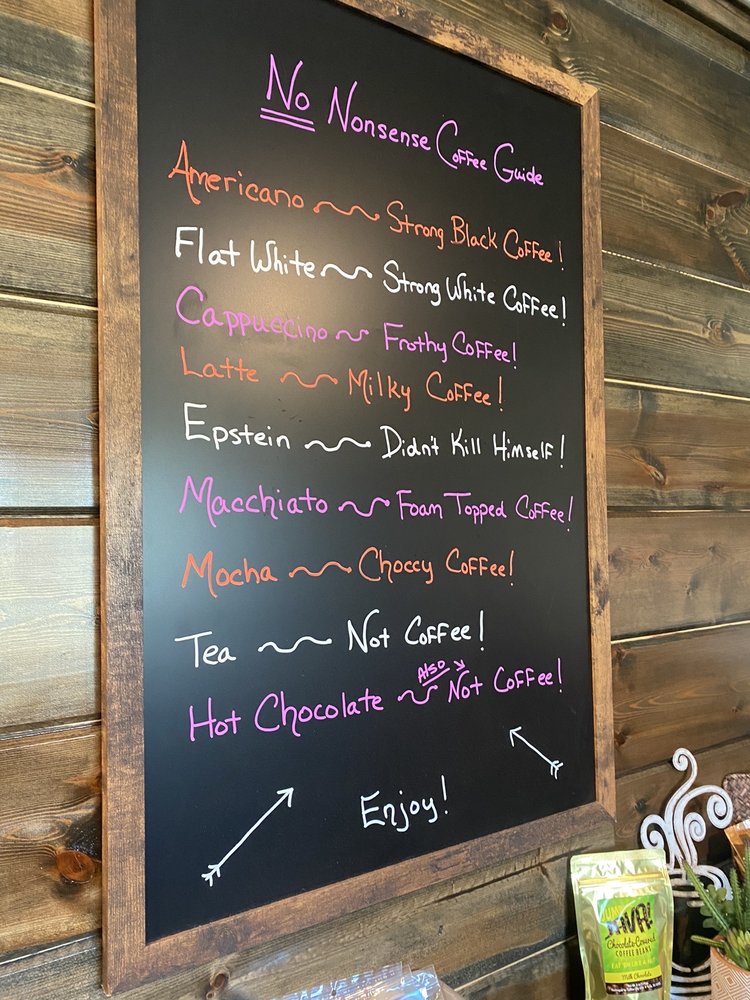 No Nonsense Coffee Guide
Americano ~ Strong Black Coffee!
Flat White ~ Strong White Coffee!
Cappuccino ~ Frothy Coffee!
Latte ~ Milky Coffee!
Epstein ~ Didn't Kill Himself!
Macchiato ~ Foam Topped Coffee!
Mocha ~ Choccy Coffee!
Tea ~ Not Coffee!
Also
Hot Chocolate ~ Not Coffee!
Enjoy!
JAVA!
Chocolate Covered
COFFEE BEANS
Milk Chocolate